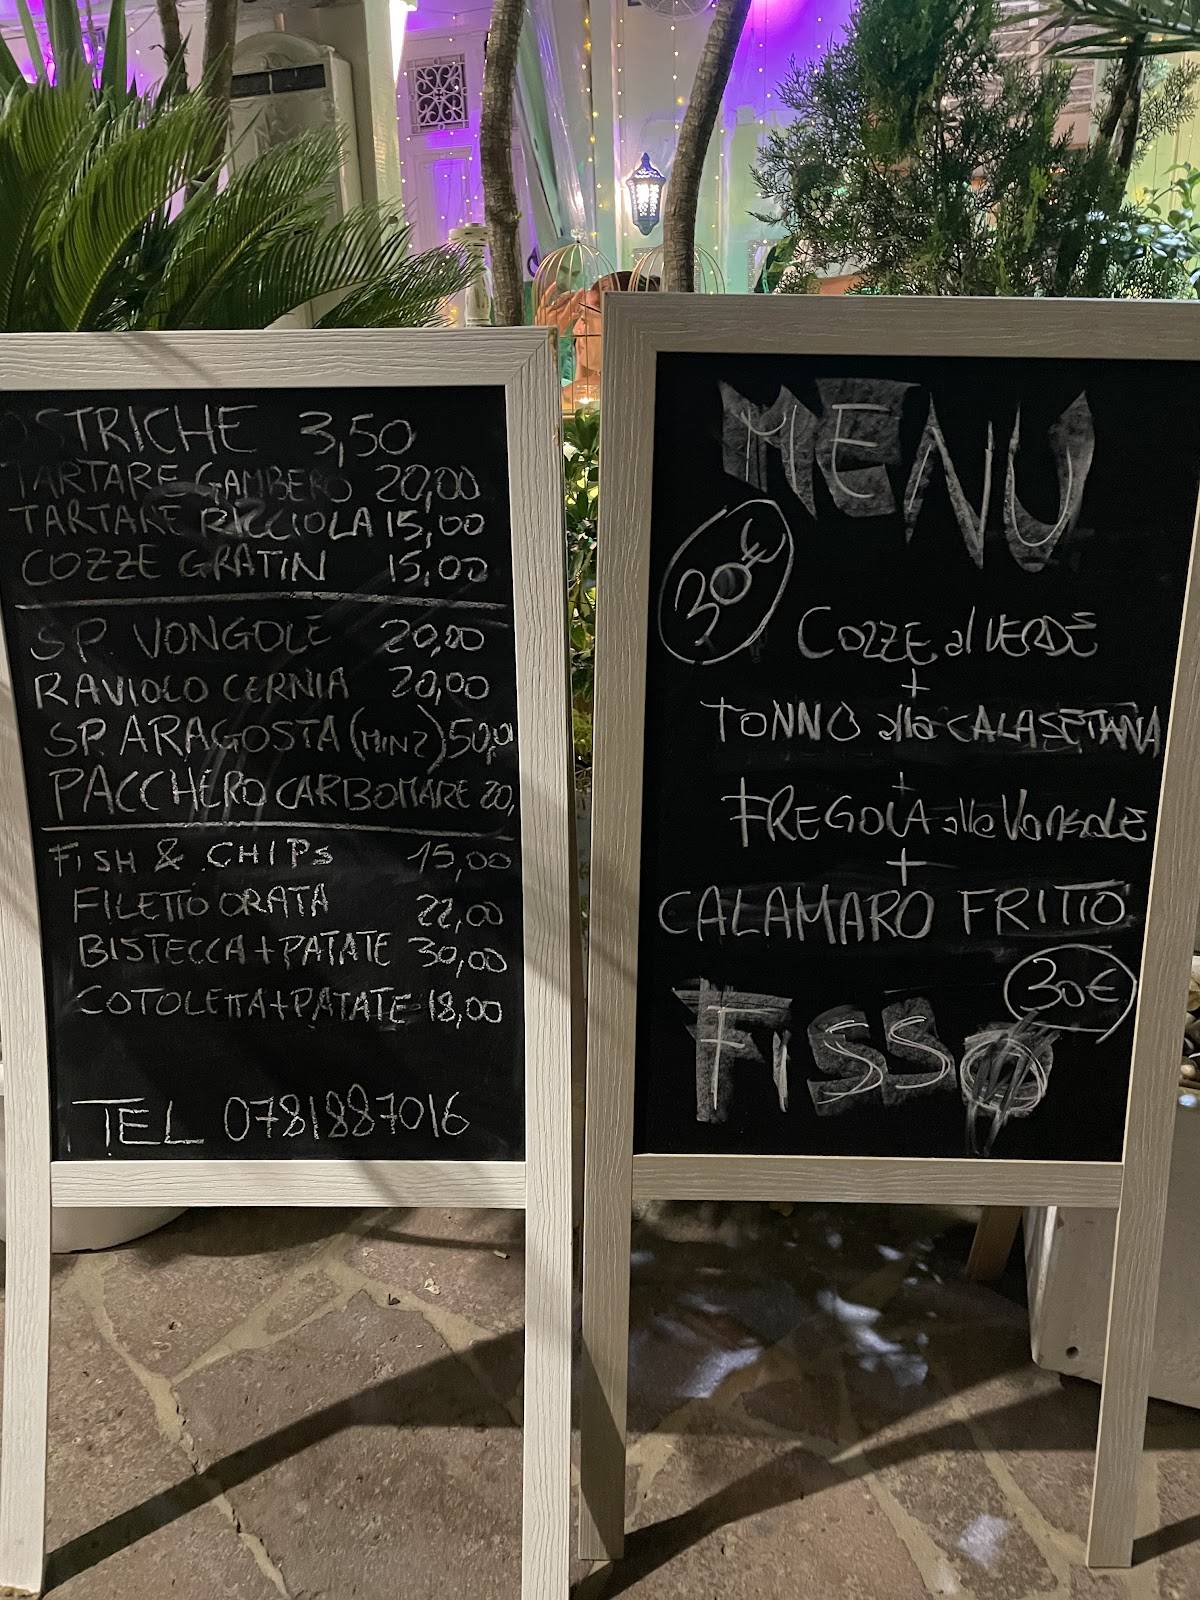 OSTRICHE 3,50
TARTARE GAMBERO 20,00
TARTARE RICCIOLA 15,00
COZZE GRATIN 15,00
SP. VONGOLE 20,00
RAVIOLO CERNIA 20,00
SP. ARAGOSTA (MIN 2) 50,0
PACCHERO CARBOMARE 20,
FISH & CHIPS 15,00
FILETTO ORATA 22,00
BISTECCA + PATATE 30,00
COTOLETTA + PATATE 18,00
TEL 0781887016
MENU
30€
COZZE al VERDE
+
TONNO alla CALASETANA
+
FREGOLA alle VONGOLE
+
CALAMARO FRITTO
30€
FISSO